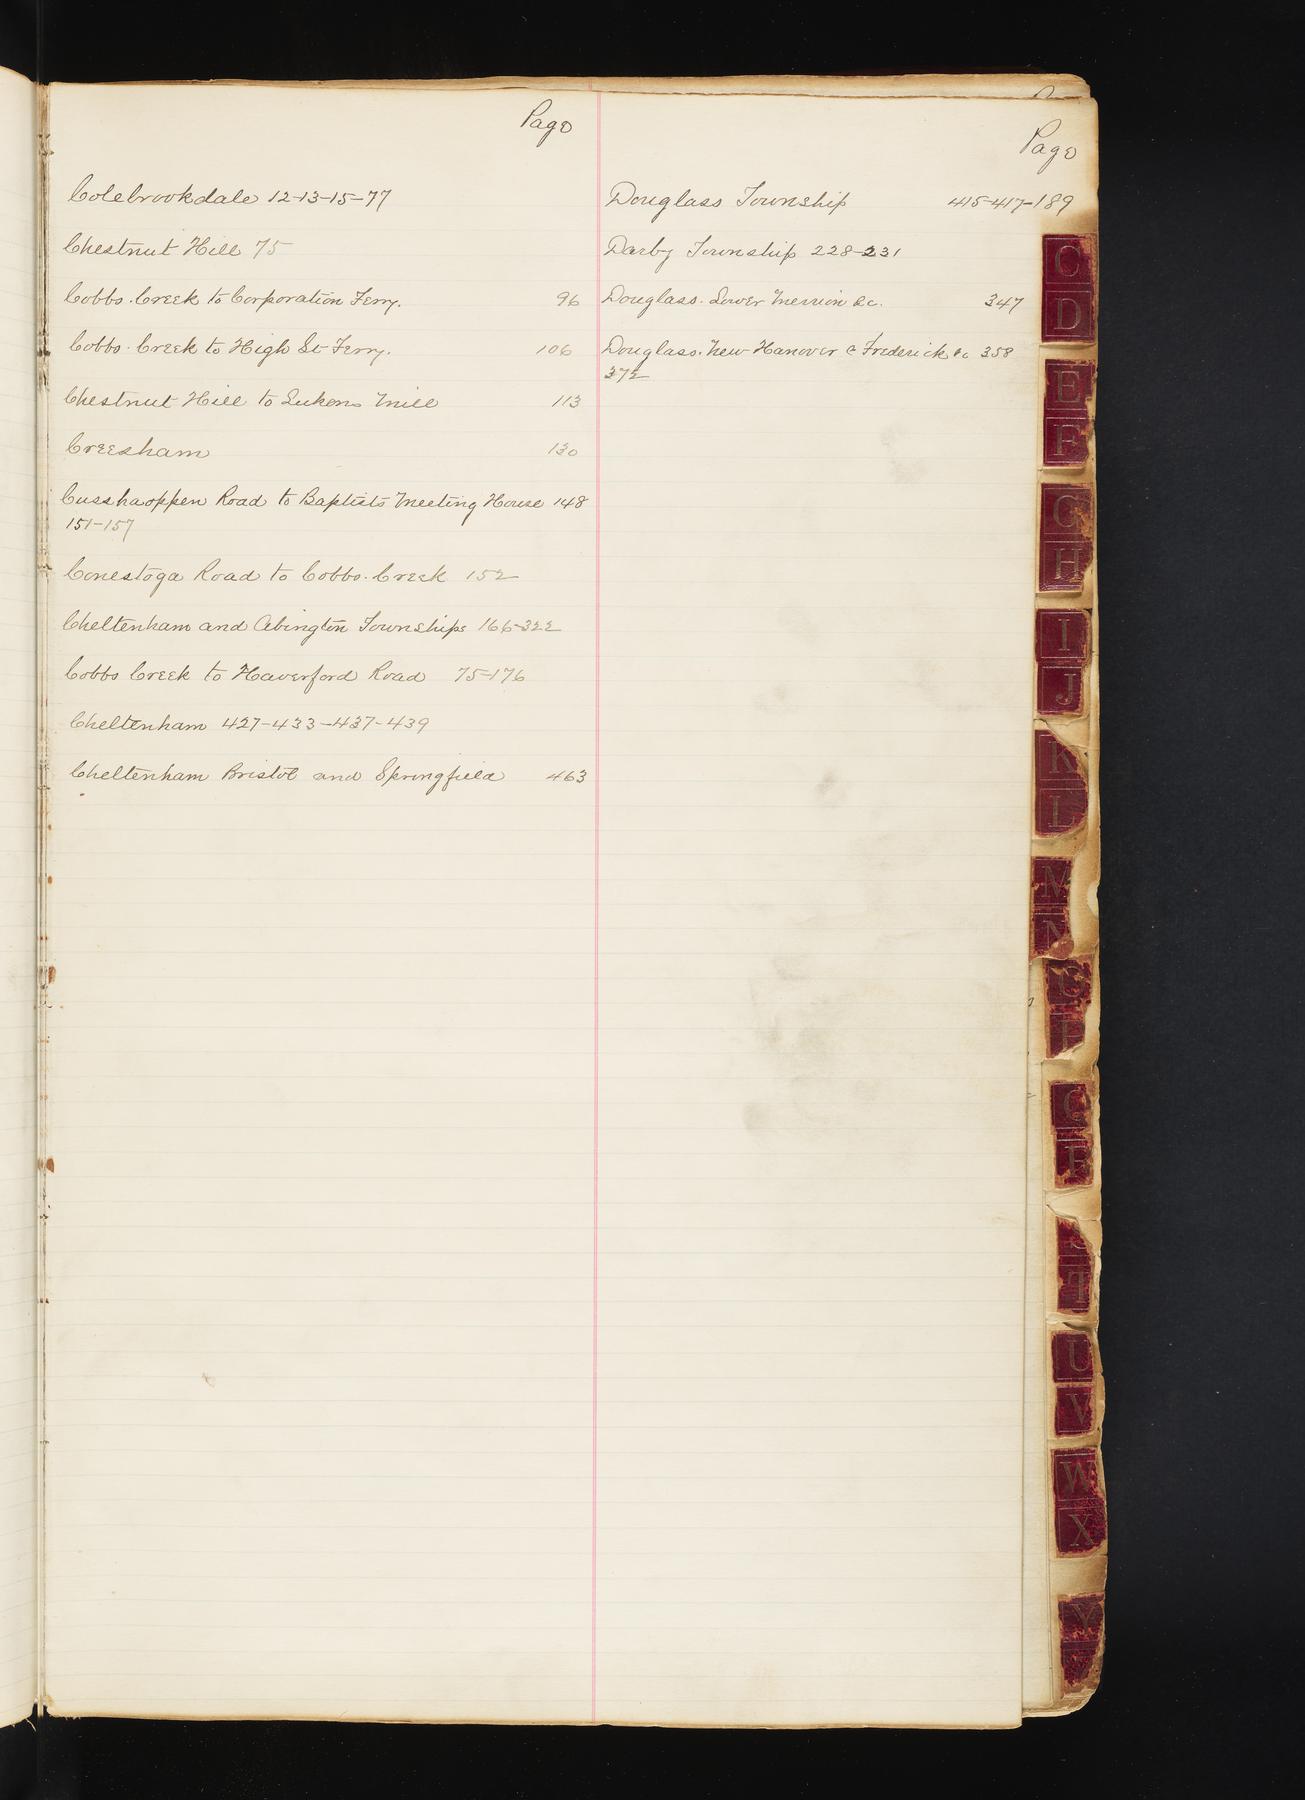 Page
Colebrookdale 12-13-15-77
Chestnut Hill 75
Cobbs. Creek to Corporation Ferry. 96
Cobbs. Creek to High St Ferry. 106
Chestnut Hill to Lukens Mill 113
Creesham 130
Cusshaoppen Road to Baptists Meeting House 148
151-157
Conestoga Road to Cobbs. Creek 152
Cheltenham and Abington Townships 166-322
Cobbs Creek to Haverford Road 75-176
Cheltenham 427-433-437-439
Cheltenham Bristol and Springfield 463
Page
Douglass Township 415-417-189
Darby Township 228-231
Douglass. Lower Merrion &c. 347
Douglass. New Hanover & Frederick &c 358
372
C
D
E
F
G
H
I
J
K
L
M
N
O
P
Q
R
S
T
U
V
W
X
Y